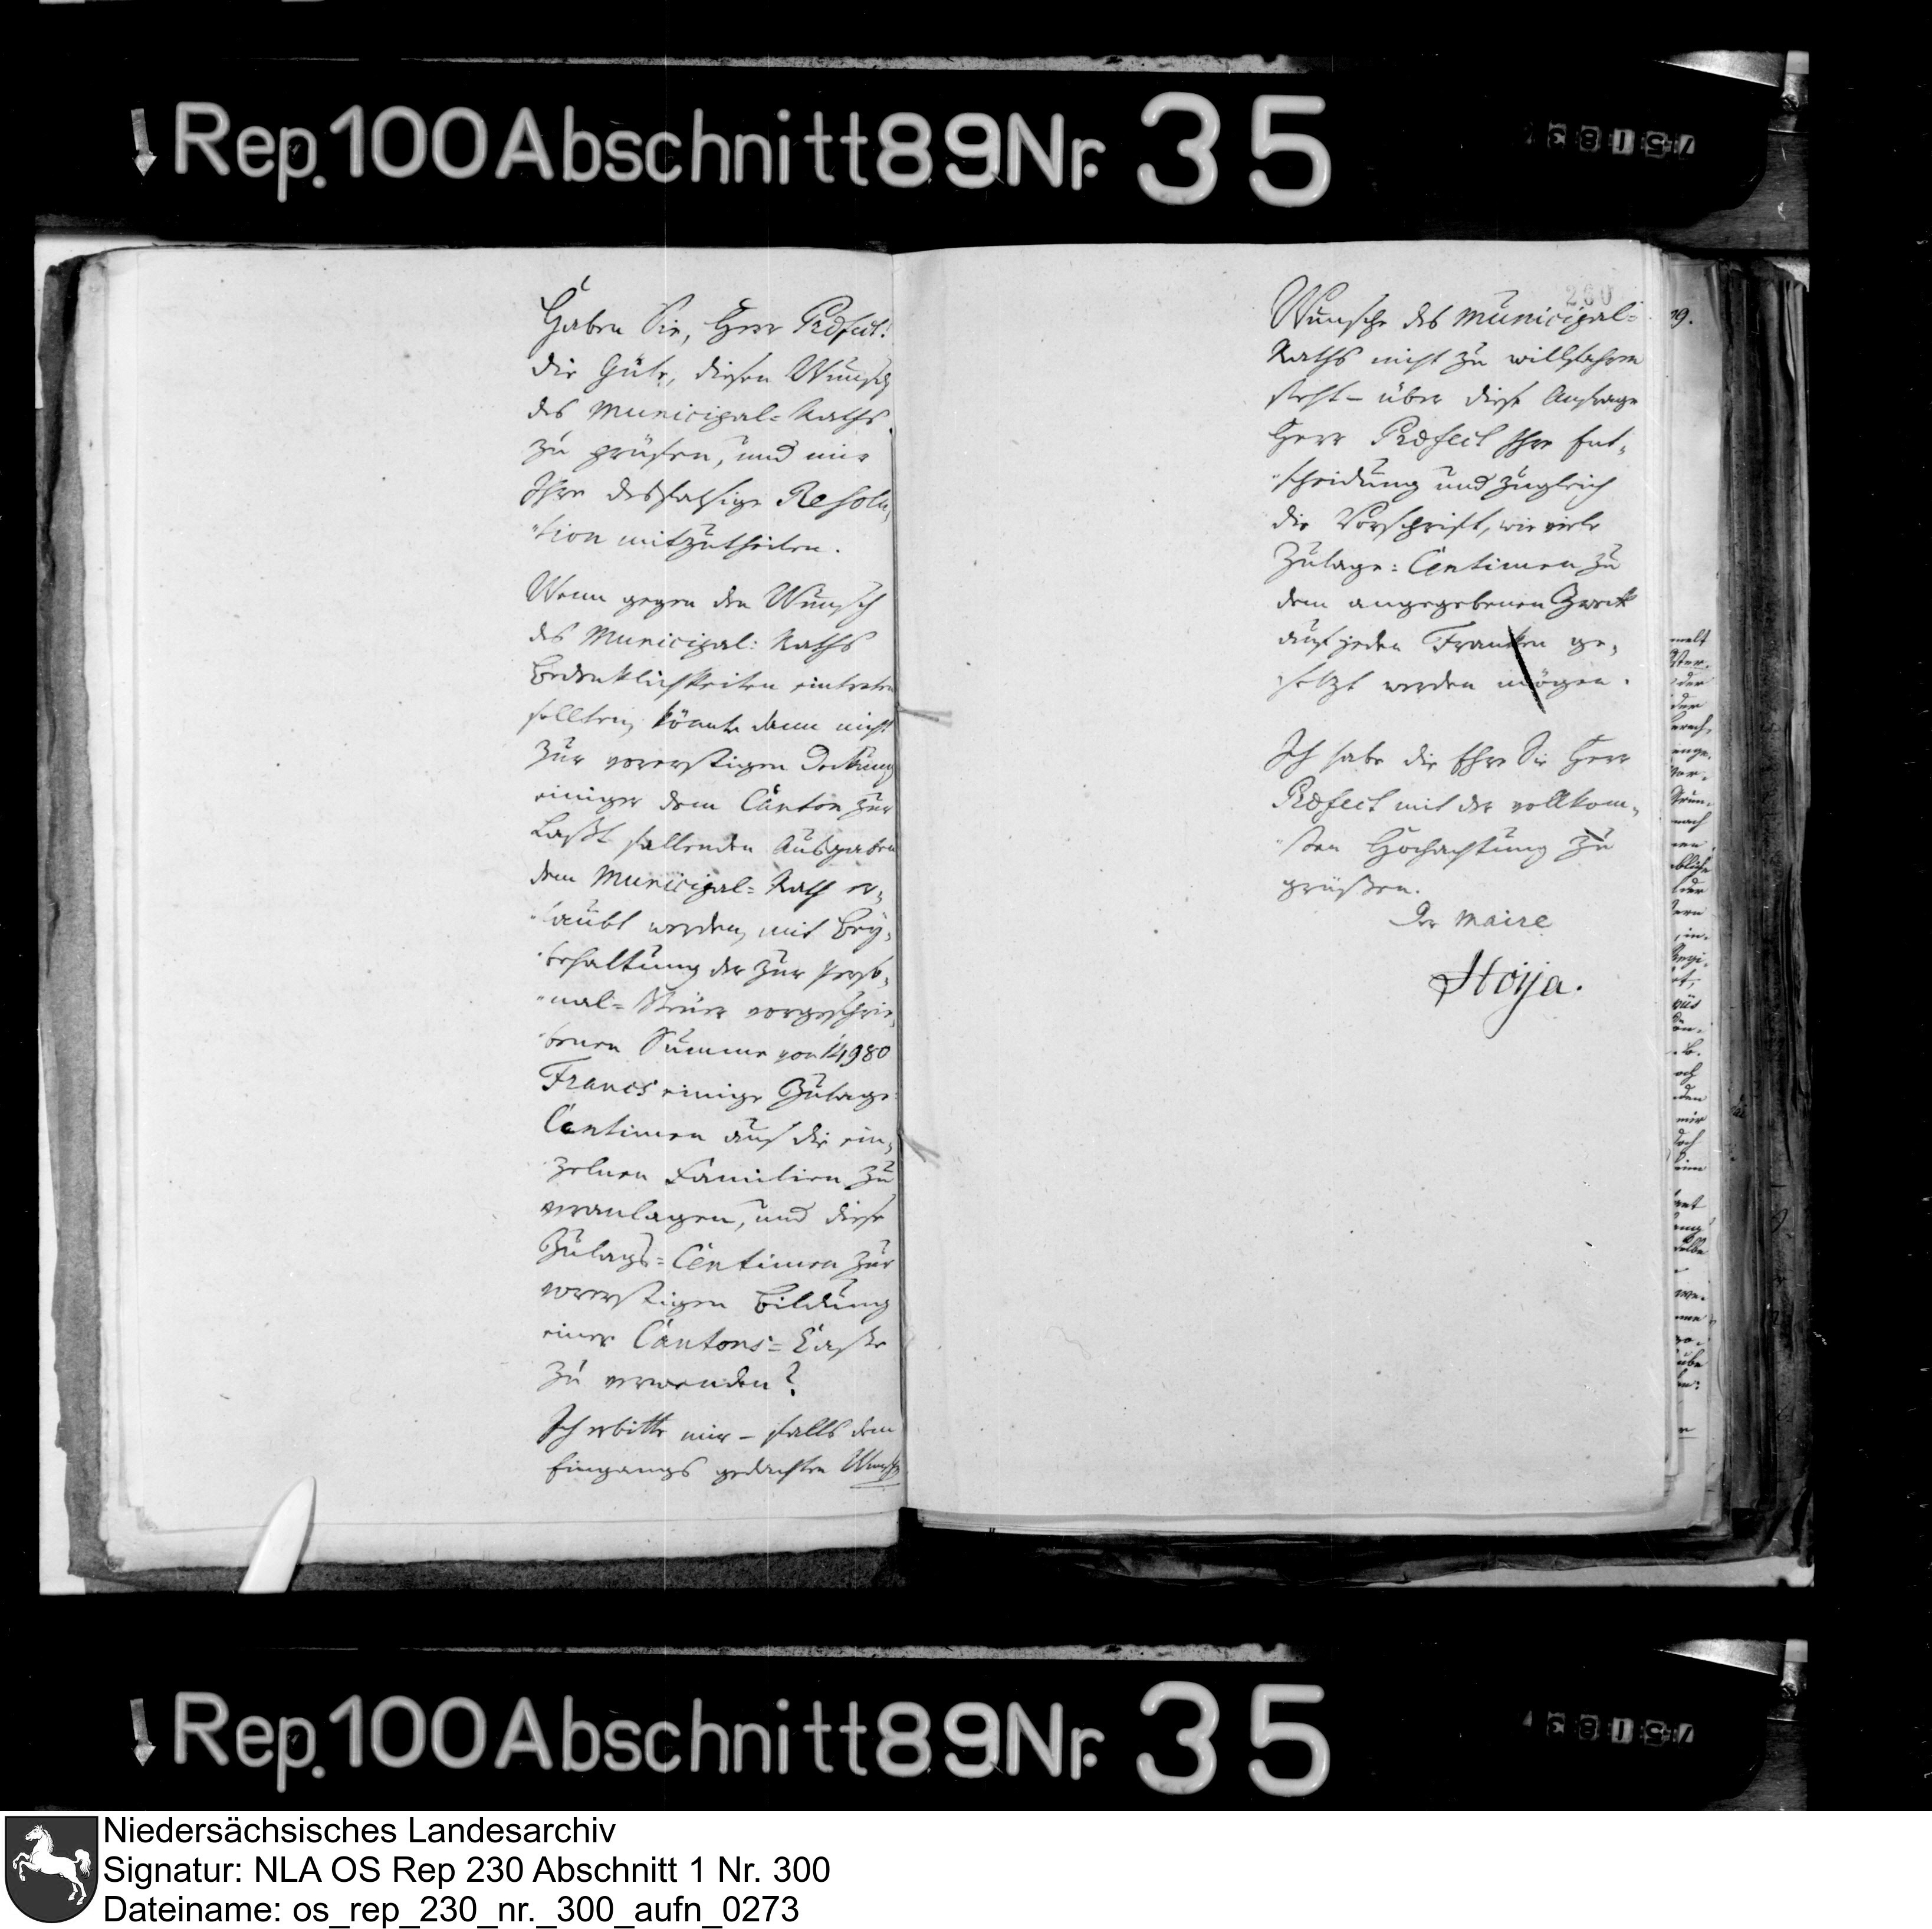 Rep. 100 Abschnitt 89 Nr. 35
Haben Sie, Herr Präfect!
die Güte, diesen Wunsch
des Municipal-Raths
zu prüfen, und mir
Ihre desfalsige Resolu,
"tion mitzutheilen.
Wenn gegen den Wunsch
des Municipal: Raths
Bedenklichkeiten eintreten
sollten, könnte dann nicht
zur vorerstigen Deckung
einiger dem Canton zur
Last fallenden Ausgaben
dem Municipal-Rath er,
"laubt werden, mit Bey,
"behaltung der zur Perso,
"nal-Steuer vorgeschrie,
"benen Summe von 14980
Francs einige Zulage-
Centimen auf die ein,
"zelnen Familien zu
veranlagen, und diese
Zulags-Centimen zur
vorerstigen Bildung
einer Cantons-Casse
zu verwenden?
Ich erbitte mir – falls dem
Eingangs gedachten Wunsche
260
Wunsche des Municipal-
Raths nicht zu willfahren
steht – über diese Anfrage
Herr Präfect Ihre Ent,
"scheidung und zugleich
die Vorschrift, wie viele
Zulage-Centimen zu
dem angegebenen Zweck
auf jeden Franken ge,
"setzt werden mögen.
Ich habe die Ehre Sie Herr
Präfect mit der vollkom,
"sten Hochachtung zu
grüßen.
Der Maire
Stoija.
Rep. 100 Abschnitt 89 Nr. 35
Niedersächsisches Landesarchiv
Signatur: NLA OS Rep 230 Abschnitt 1 Nr. 300
Dateiname: os_rep_230_nr._300_aufn_0273